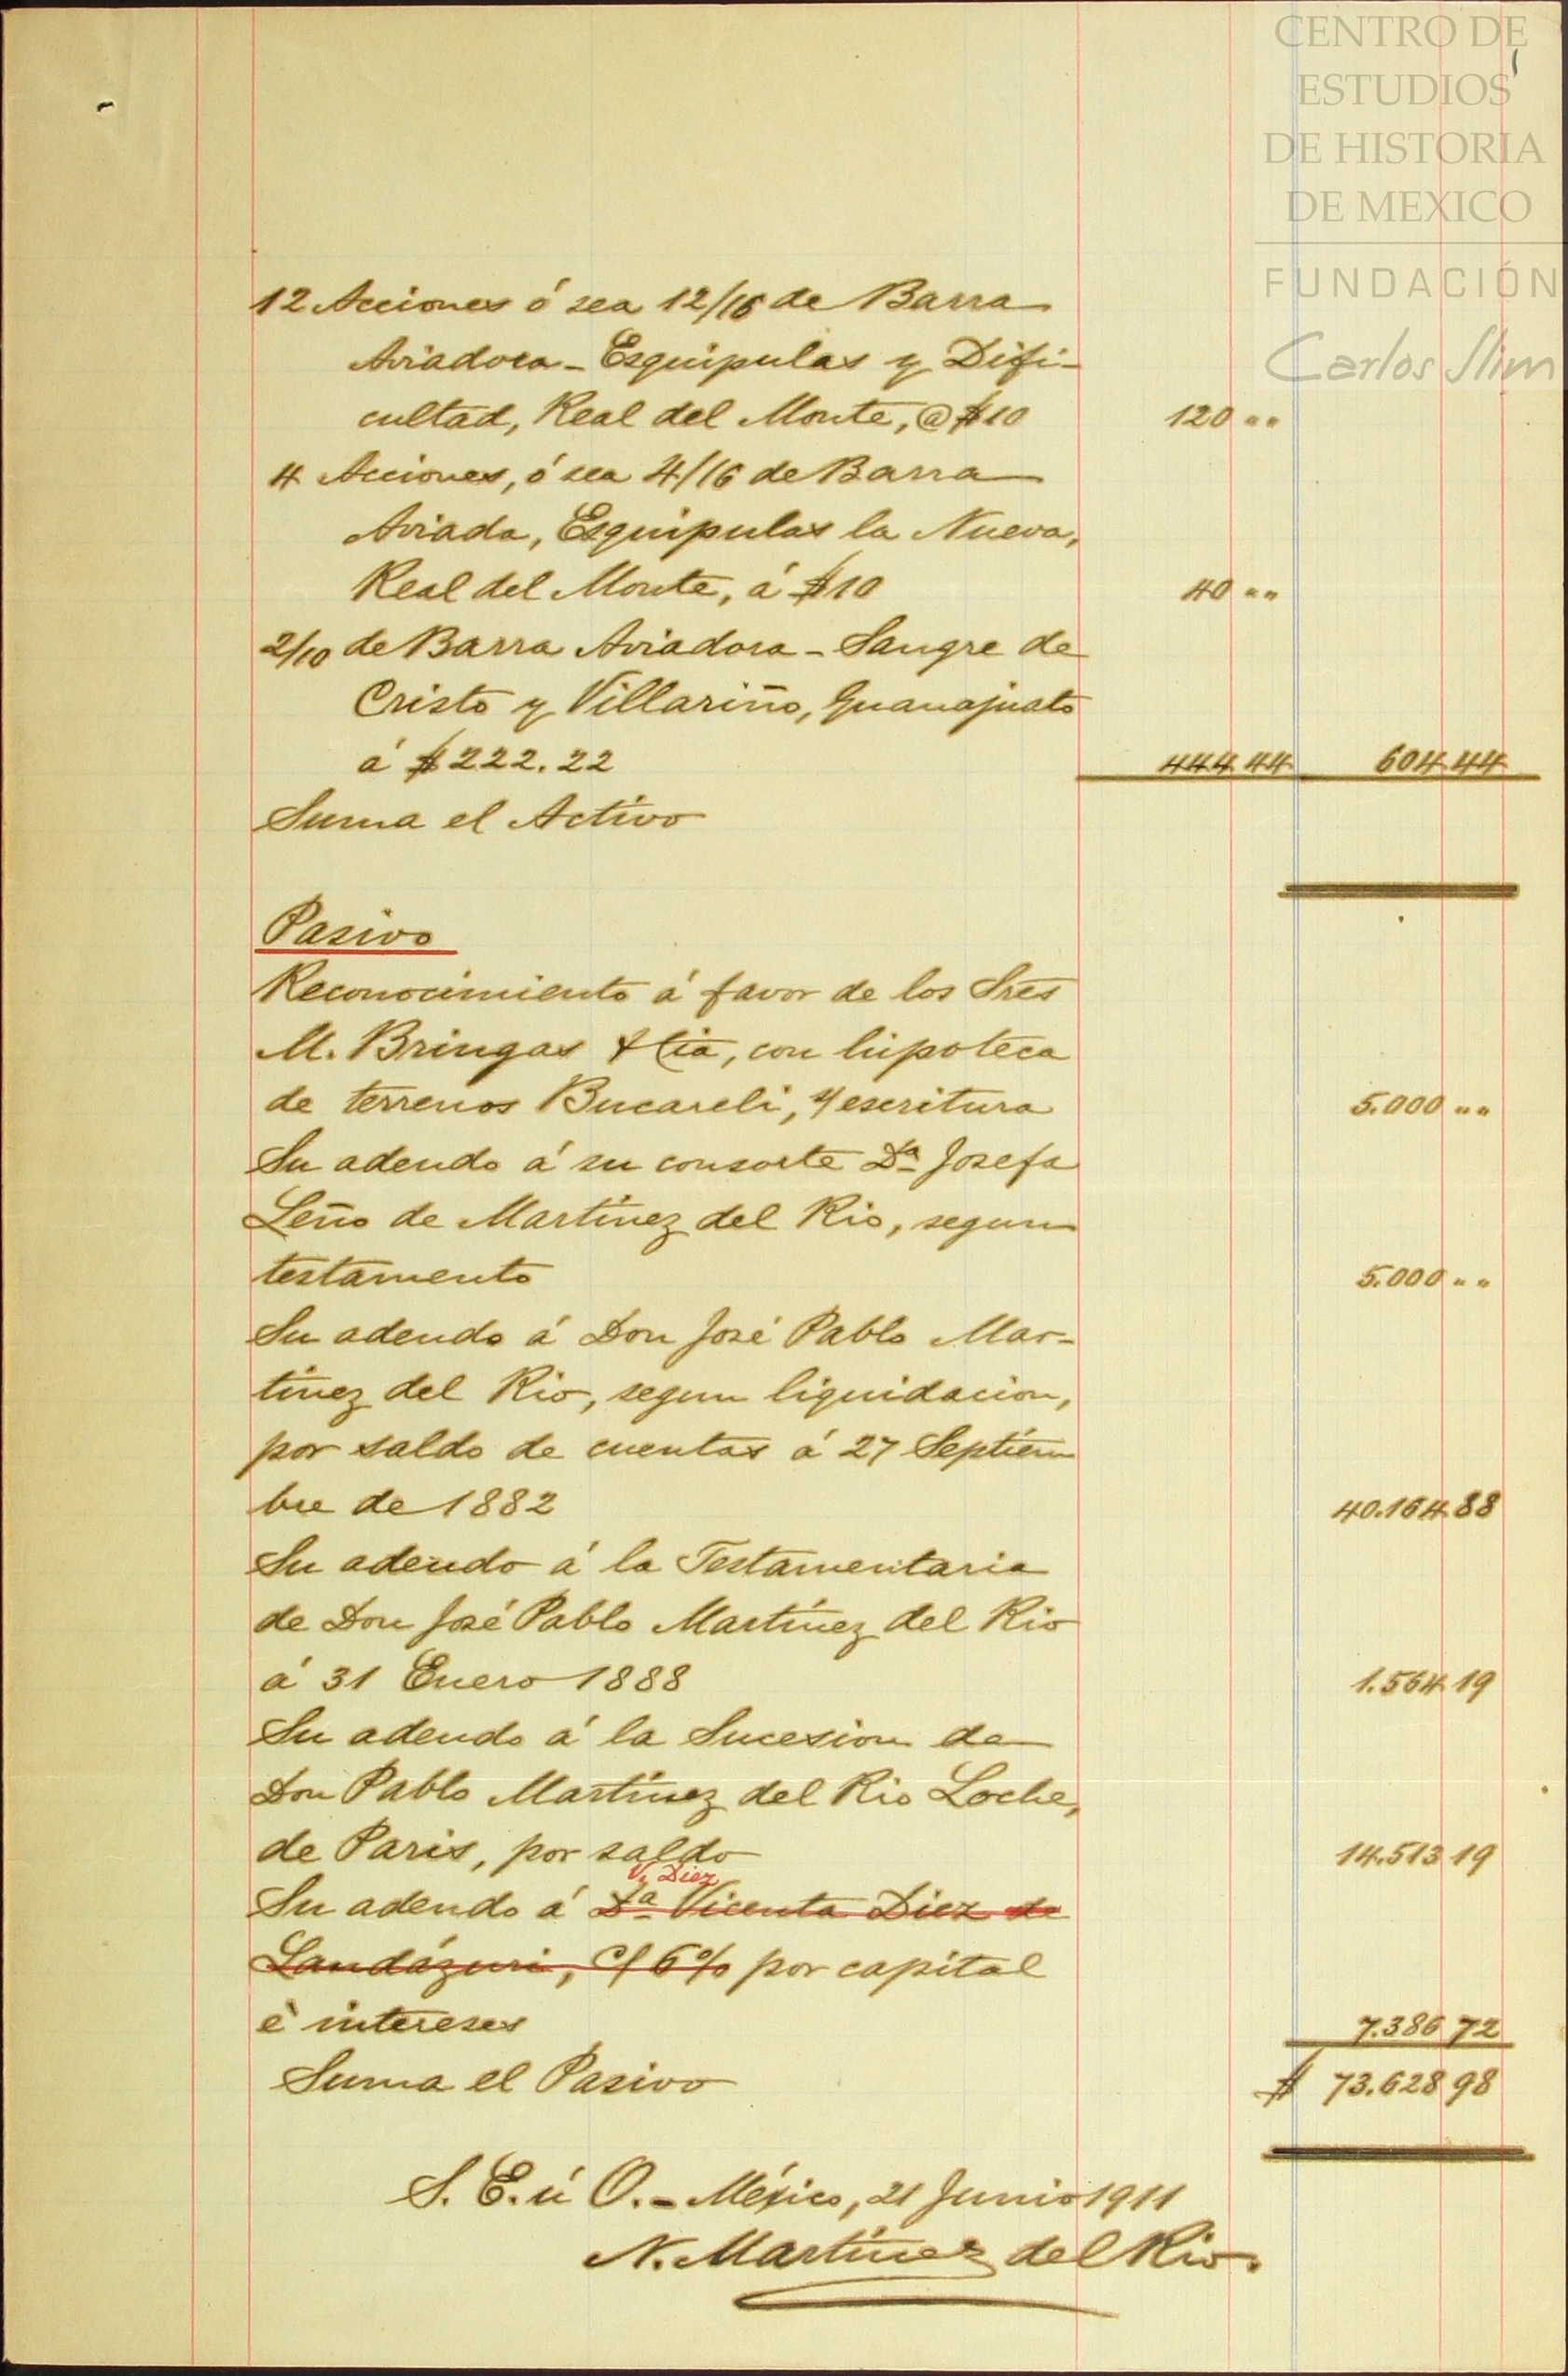 CENTRO DE
ESTUDIOS
DE HISTORIA
DE MEXICO
FUNDACIÓN
Carlos Slim
12 Acciones ó sea 12/16 de Barra
Aviadora - Esquipulas y Difi-
cultad, Real del Monte, @ $10 120 „ „
4 Acciones, ó sea 4/16 de Barra
Aviada, Esquipulas la Nueva,
Real del Monte, á $10 40 „ „
2/10 de Barra Aviadora - Sangre de
Cristo y Villariño, Guanajuato
á $222.22 444 44 604 44
Suma el Activo
Pasivo
Reconocimiento á favor de los Sres
M. Bringas & Cia, con hipoteca
de terrenos Bucareli, s/ escritura 5.000 „ „
Su adeudo á su consorte Da Josefa
Leño de Martínez del Rio, segun
testamento 5.000 „ „
Su adeudo á Don José Pablo Mar-
tínez del Rio, segun liquidacion,
por saldo de cuentas á 27 Septiem
bre de 1882 40.164 88
Su adeudo á la Testamentaria
de Don José Pablo Martínez del Rio
á 31 Enero 1888 1.564 19
Su adeudo á la Sucesion de
Don Pablo Martínez del Rio Loche,
de Paris, por saldo 14.513 19
V. Diez
Su adeudo á Da Vicenta Diez de
Landázuri, c/ 6% por capital
é intereses 7.386 72
Suma el Pasivo $ 73.628 98
S. E. ú O. - México, 21 Junio 1911
N. Martínez del Rio.